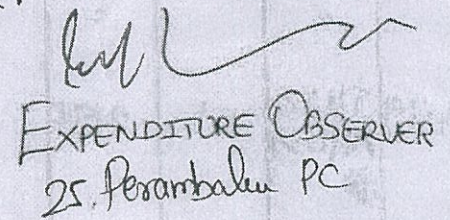 EXPENDITURE OBSERVER
25. Perambalu PC